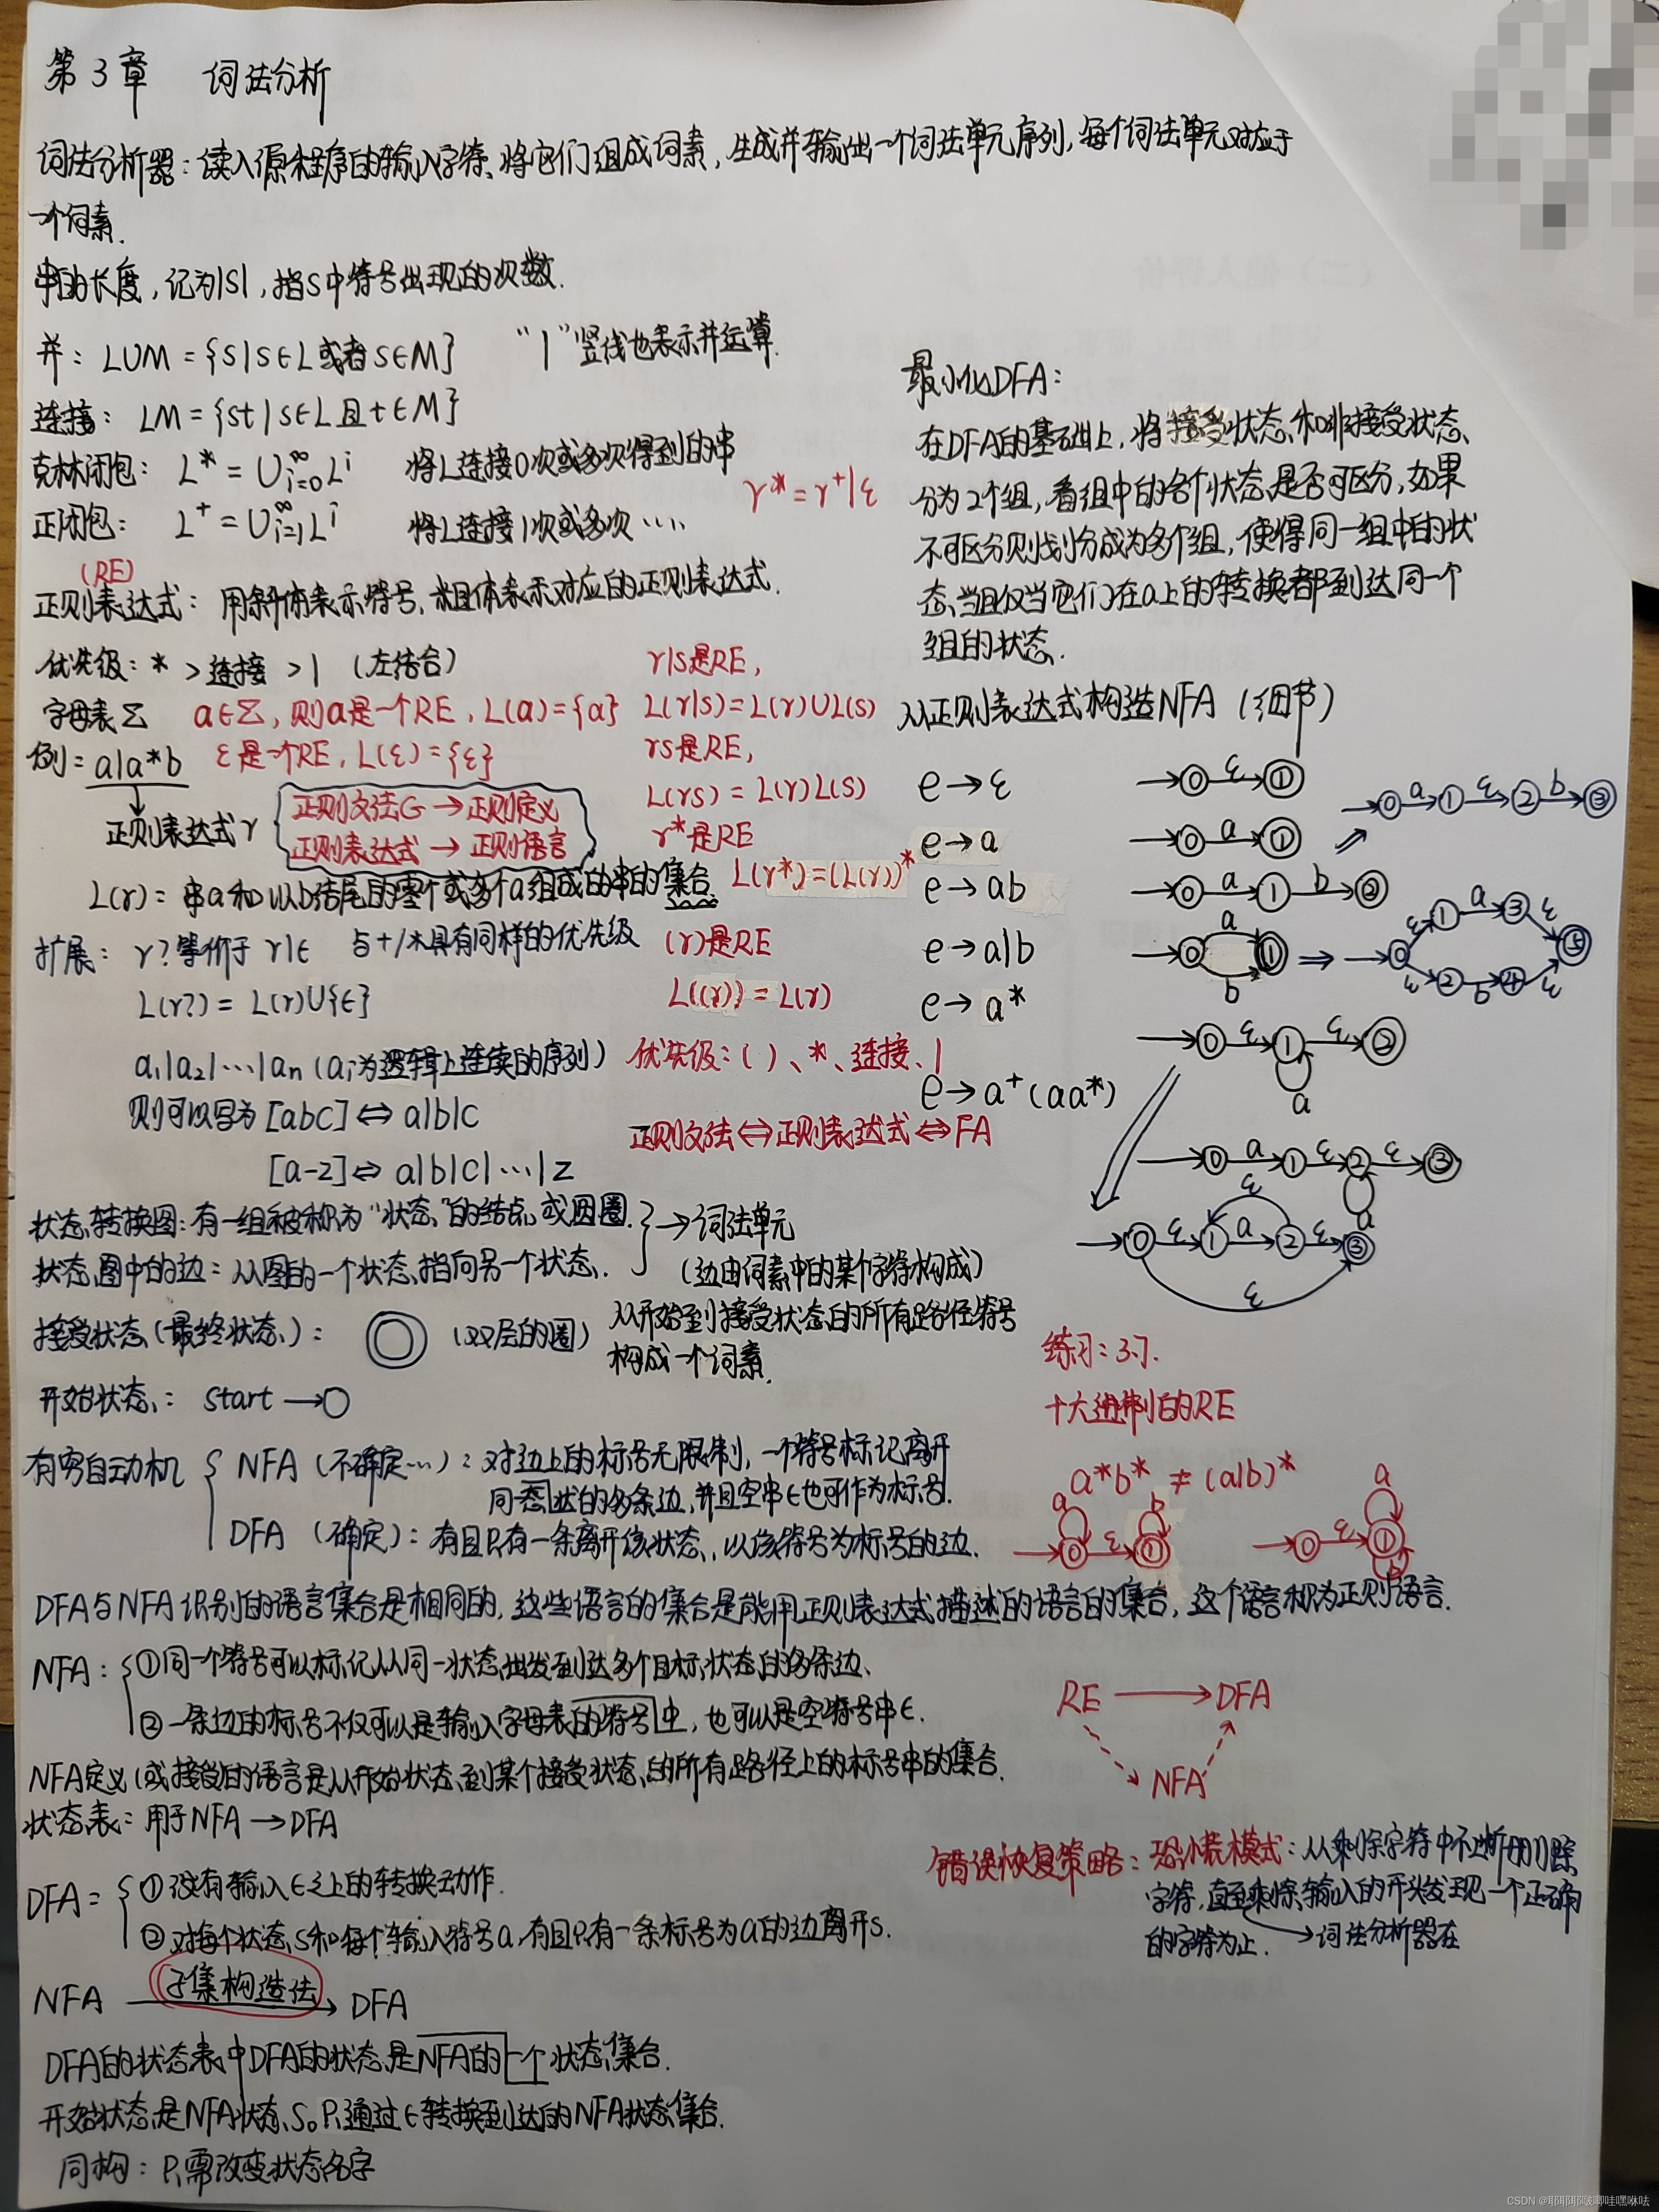 第3章 词法分析
词法分析器：读入源程序的输入字符、将它们组成词素，生成并输出一个词法单元序列，每个词法单元对应于
一个词素.
串的长度，记为|S|，指S中符号出现的次数.
并： L∪M = {s|s∈L或者s∈M} “|”竖线也表示并运算.
连接： LM = {st|s∈L且t∈M}
克林闭包： L* = ∪∞i=0 Lⁱ 将L连接0次或多次得到的串
r* = r⁺|ε
正闭包： L⁺ = ∪∞i=1 Lⁱ 将L连接1次或多次……
(RE)
正则表达式： 用斜体表示符号，粗体表示对应的正则表达式.
优先级：* > 连接 > | （左结合）
字母表Σ a∈Σ，则a是一个RE，L(a)={a}
例= a|a*b ε是一个RE，L(ε)={ε}
正则表达式r
正则文法G → 正则定义
正则表达式 → 正则语言
L(r) = 串a和以b结尾的零个或多个a组成的串的集合.
r|s是RE，
L(r|s)=L(r)∪L(s)
rs是RE，
L(rs) = L(r)L(s)
r*是RE
L(r*)=(L(r))*
(r)是RE
L((r)) = L(r)
优先级：( )、*、连接、|
正则文法⇔正则表达式⇔FA
扩展： r?等价于 r|ε 与+/*具有同样的优先级
L(r?) = L(r)∪{ε}
a₁|a₂|…|an (aᵢ为逻辑上连续的序列)
则可以写为 [abc] ⇔ a|b|c
[a-z] ⇔ a|b|c|…|z
状态转换图：有一组被称为“状态”的结点或圆圈.
状态图中的边：从图的一个状态指向另一个状态.
→词法单元
（边由词素中的某个字符构成）
从开始到接受状态的所有路径符号
构成一个词素.
接受状态（最终状态）： （双层的圈）
开始状态： start →○
有穷自动机
NFA（不确定…）：对边上的标号无限制，一个符号标记离开
同一状态的多条边，并且空串ε也可作为标号.
DFA （确定）：有且只有一条离开该状态，以该符号为标号的边.
DFA与NFA识别的语言集合是相同的，这些语言的集合是能用正则表达式描述的语言的集合，这个语言称为正则语言.
NFA：①同一个符号可以标记从同一状态出发到达多个目标状态的多条边、
②一条边的标号不仅可以是输入字母表中的符号，也可以是空符号串ε.
NFA定义（或接受）的语言是从开始状态到某个接受状态的所有路径上的标号串的集合.
状态表：用于NFA → DFA
DFA = ①没有输入ε之上的转换动作.
②对每个状态S和每个输入符号a，有且只有一条标号为a的边离开S.
NFA 子集构造法 → DFA
DFA的状态表中DFA的状态是NFA的一个状态集合.
开始状态是NFA状态S₀只通过ε转换到达的NFA状态集合.
同构：只需改变状态名字
最小化DFA：
在DFA的基础上，将接受状态和非接受状态
分为2个组，看组中的各个状态是否可区分，如果
不可区分则划分成为多个组，使得同一组中的状
态，当且仅当它们在a上的转换都到达同一个
组的状态.
从正则表达式构造NFA（细节）
e → ε →0 ε 1
e → a →0 a 1
→0 a 1 ε 2 b 3
e → ab →0 a 1 b 2
e → a|b 0 a 1 b ⇒ →0 ε 1 a 3 ε 5 ε 2 b 4 ε
e → a* →0 ε 1 ε 2 a
e → a⁺(aa*) →0 a 1 ε 2 ε 3 a
→0 ε 1 a 2 ε 3 ε ε
练习：3.7.
十六进制的RE
a*b* ≠ (a|b)*
→0 ε 1 a b →0 ε 1 a b
RE → DFA
NFA
错误恢复策略：恐慌模式：从剩余字符中不断删除
字符，直至剩余输入的开头发现一个正确
的字符为止. →词法分析器在
CSDN @耶耶耶啵唧哇嘿咻呔